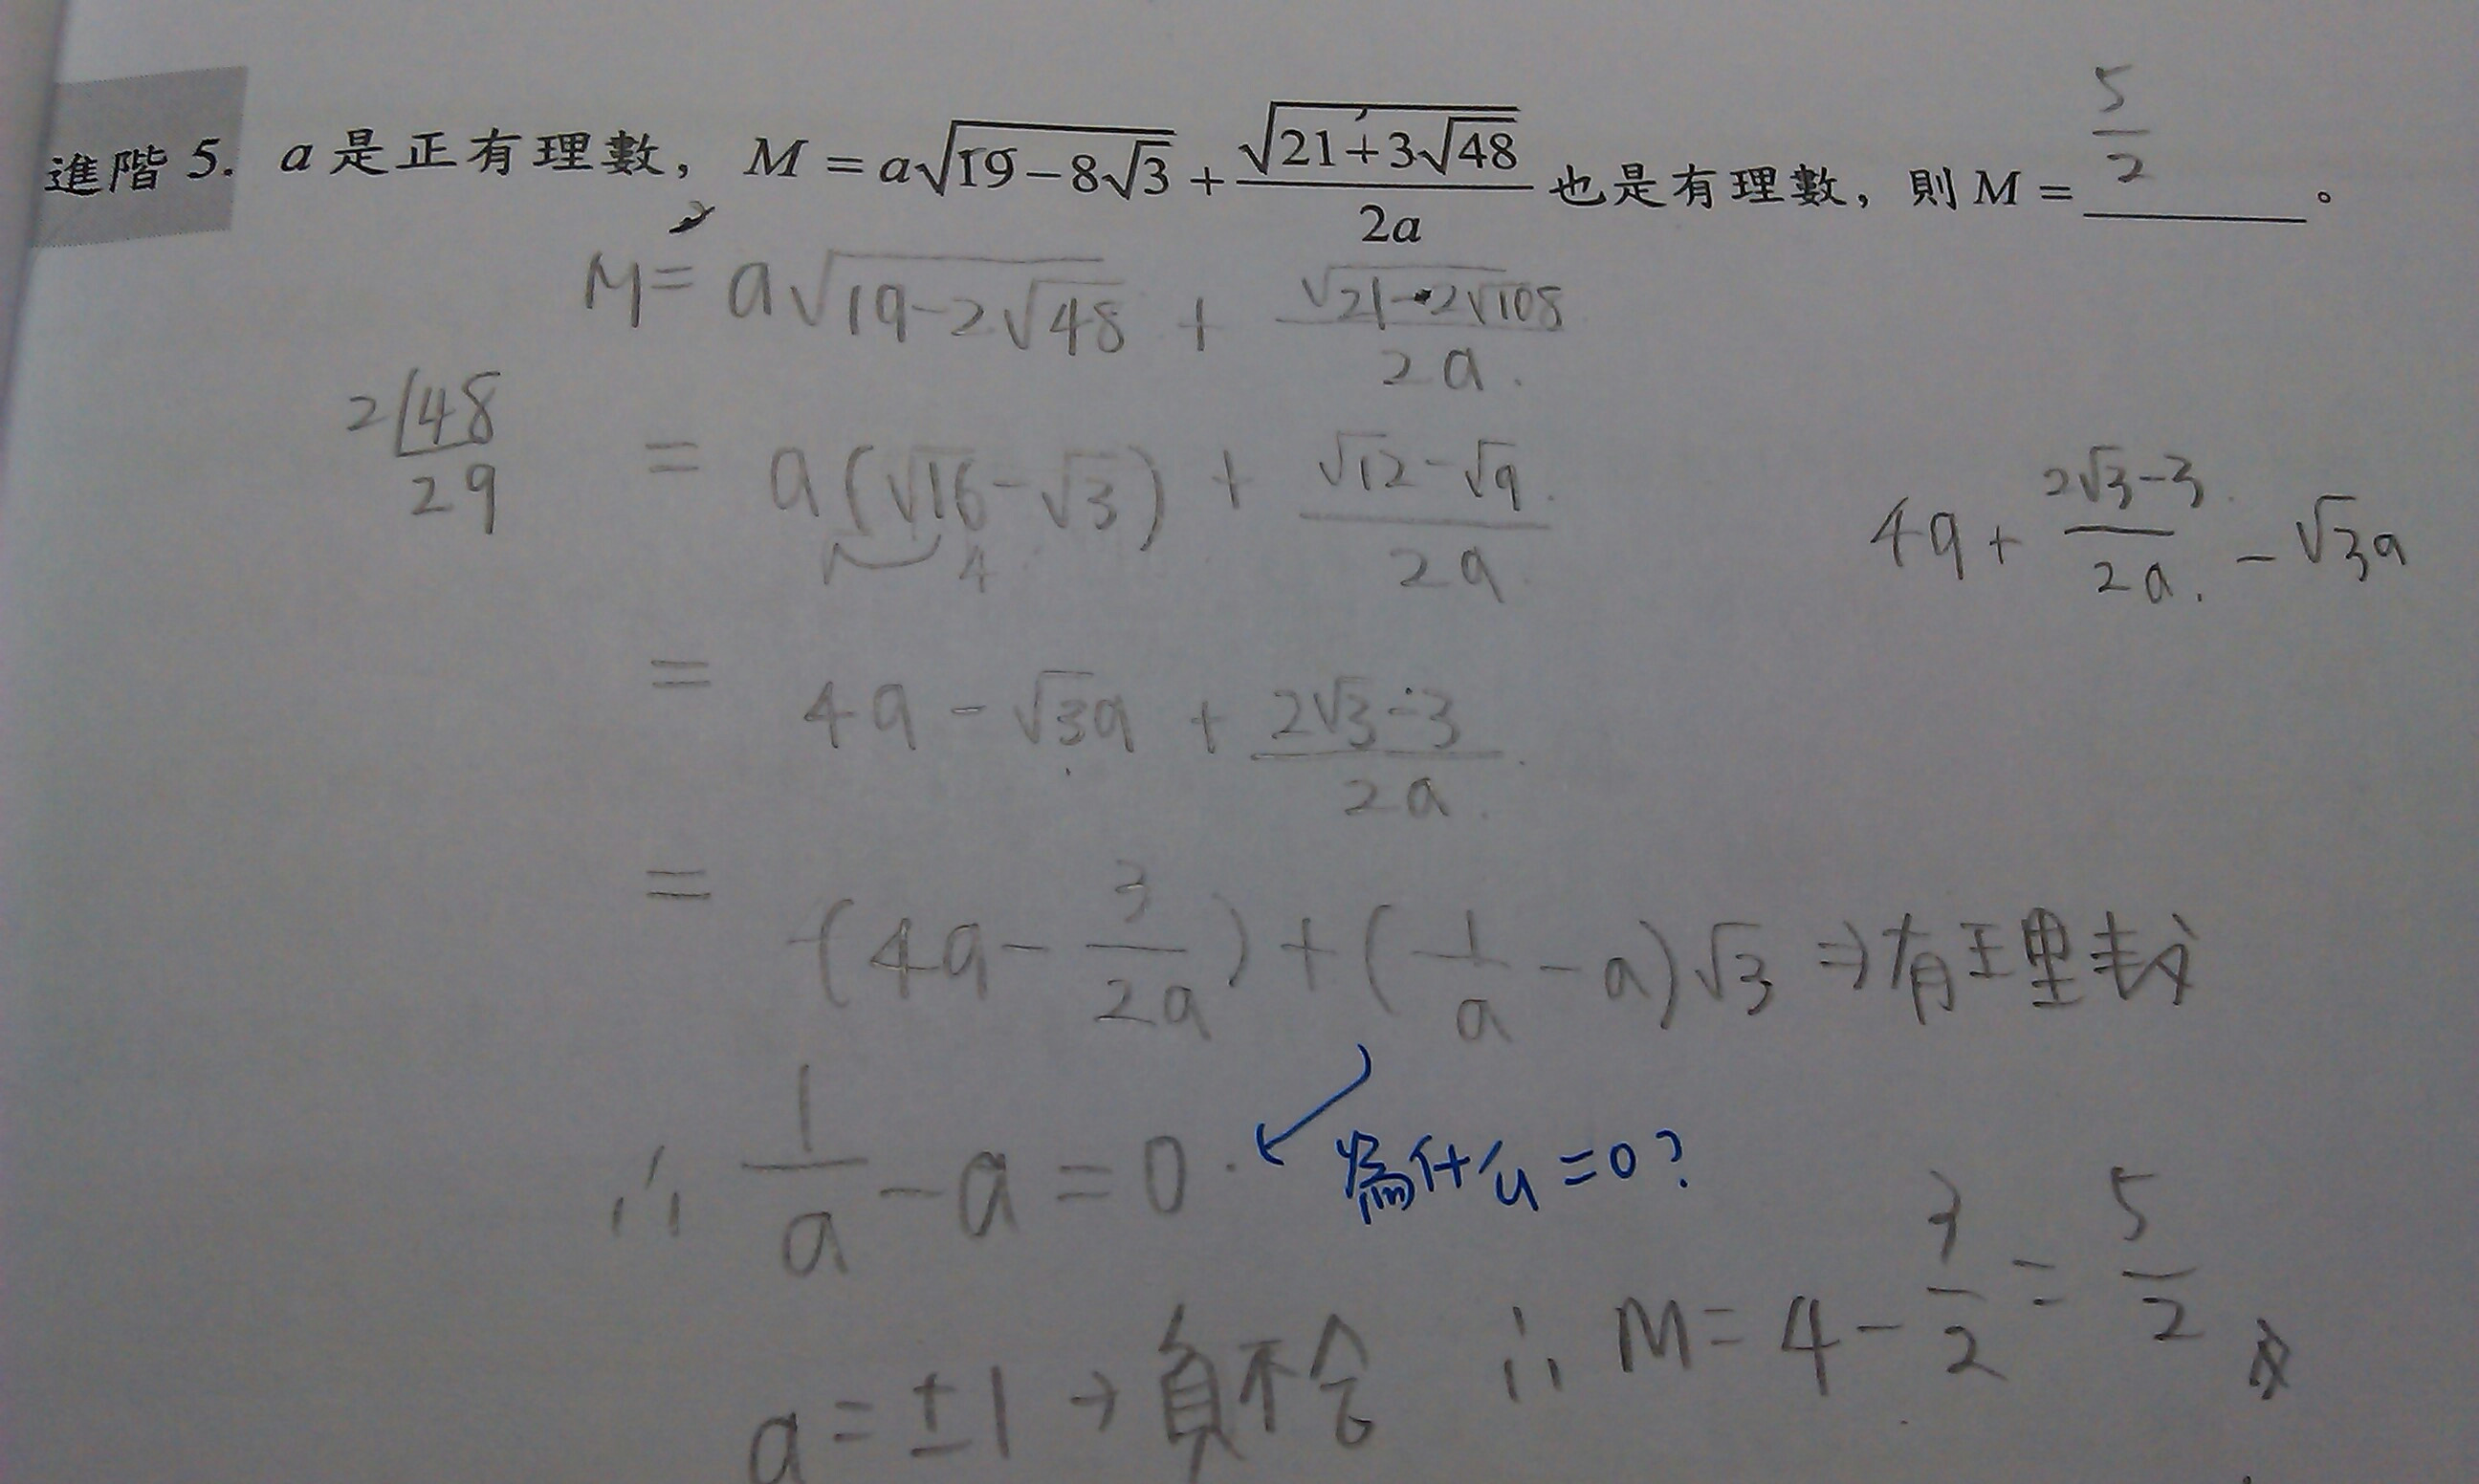 進階 5. a 是正有理數，M = a√(19−8√3) + √(21+3√48)/(2a) 也是有理數，則 M = 5/2 。
M = a√(19−2√48) + √(21−2√108)/(2a)
2|48
29
= a(√16−√3) + (√12−√9)/(2a)
4
4a + (2√3−3)/(2a) − √3a
= 4a − √3a + (2√3−3)/(2a)
= (4a − 3/(2a)) + (1/a − a)√3 ⇒ 有理數
∴ 1/a − a = 0 ← 為什么=0?
a = ±1 → 負不合 ∴ M = 4 − 3/2 = 5/2